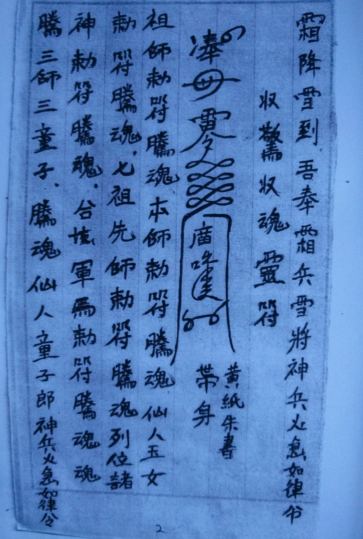 霜降雪到、吾奉霜兵雪將神兵火急如律令
收驚收魂靈符
奉
黃紙朱書
帶身
祖師勅符騰魂本師勅符騰魂仙人玉女
勅符騰魂、七祖先師勅符騰魂列位諸
神勅符騰魂、合壇軍馬勅符騰魂魂
騰三師三童子、騰魂仙人童子郎神兵火急如律令
2